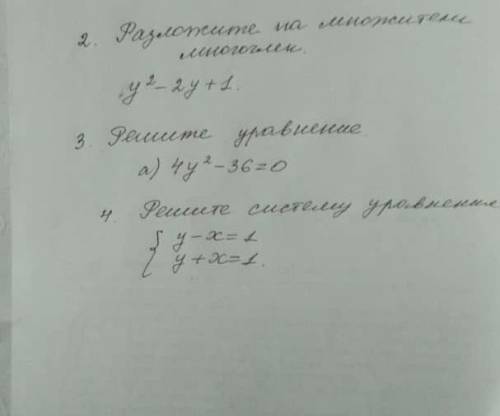 2. Разложите на множители
многочлен.
y² - 2y + 1.
3. Решите уравнение
а) 4y² - 36 = 0
4. Решите систему уравнения
{ y - x = 1
y + x = 1.